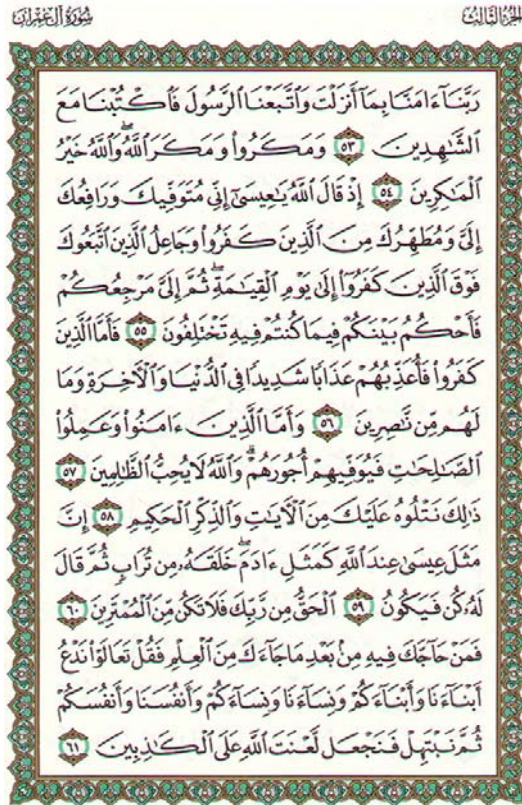 سُورَةُ آلِ عِمْرَانَ
الجُزْءُ الثَّالِثُ
رَبَّنَآ ءَامَنَّا بِمَآ أَنزَلْتَ وَٱتَّبَعْنَا ٱلرَّسُولَ فَٱكْتُبْنَا مَعَ
ٱلشَّٰهِدِينَ ٥٣ وَمَكَرُوا۟ وَمَكَرَ ٱللَّهُ ۖ وَٱللَّهُ خَيْرُ
ٱلْمَٰكِرِينَ ٥٤ إِذْ قَالَ ٱللَّهُ يَٰعِيسَىٰٓ إِنِّى مُتَوَفِّيكَ وَرَافِعُكَ
إِلَىَّ وَمُطَهِّرُكَ مِنَ ٱلَّذِينَ كَفَرُوا۟ وَجَاعِلُ ٱلَّذِينَ ٱتَّبَعُوكَ
فَوْقَ ٱلَّذِينَ كَفَرُوٓا۟ إِلَىٰ يَوْمِ ٱلْقِيَٰمَةِ ۖ ثُمَّ إِلَىَّ مَرْجِعُكُمْ
فَأَحْكُمُ بَيْنَكُمْ فِيمَا كُنتُمْ فِيهِ تَخْتَلِفُونَ ٥٥ فَأَمَّا ٱلَّذِينَ
كَفَرُوا۟ فَأُعَذِّبُهُمْ عَذَابًا شَدِيدًا فِى ٱلدُّنْيَا وَٱلْءَاخِرَةِ وَمَا
لَهُم مِّن نَّٰصِرِينَ ٥٦ وَأَمَّا ٱلَّذِينَ ءَامَنُوا۟ وَعَمِلُوا۟
ٱلصَّٰلِحَٰتِ فَيُوَفِّيهِمْ أُجُورَهُمْ ۗ وَٱللَّهُ لَا يُحِبُّ ٱلظَّٰلِمِينَ ٥٧
ذَٰلِكَ نَتْلُوهُ عَلَيْكَ مِنَ ٱلْءَايَٰتِ وَٱلذِّكْرِ ٱلْحَكِيمِ ٥٨ إِنَّ
مَثَلَ عِيسَىٰ عِندَ ٱللَّهِ كَمَثَلِ ءَادَمَ ۖ خَلَقَهُۥ مِن تُرَابٍ ثُمَّ قَالَ
لَهُۥ كُن فَيَكُونُ ٥٩ ٱلْحَقُّ مِن رَّبِّكَ فَلَا تَكُن مِّنَ ٱلْمُمْتَرِينَ ٦٠
فَمَنْ حَآجَّكَ فِيهِ مِنۢ بَعْدِ مَا جَآءَكَ مِنَ ٱلْعِلْمِ فَقُلْ تَعَالَوْا۟ نَدْعُ
أَبْنَآءَنَا وَأَبْنَآءَكُمْ وَنِسَآءَنَا وَنِسَآءَكُمْ وَأَنفُسَنَا وَأَنفُسَكُمْ
ثُمَّ نَبْتَهِلْ فَنَجْعَل لَّعْنَتَ ٱللَّهِ عَلَى ٱلْكَٰذِبِينَ ٦١